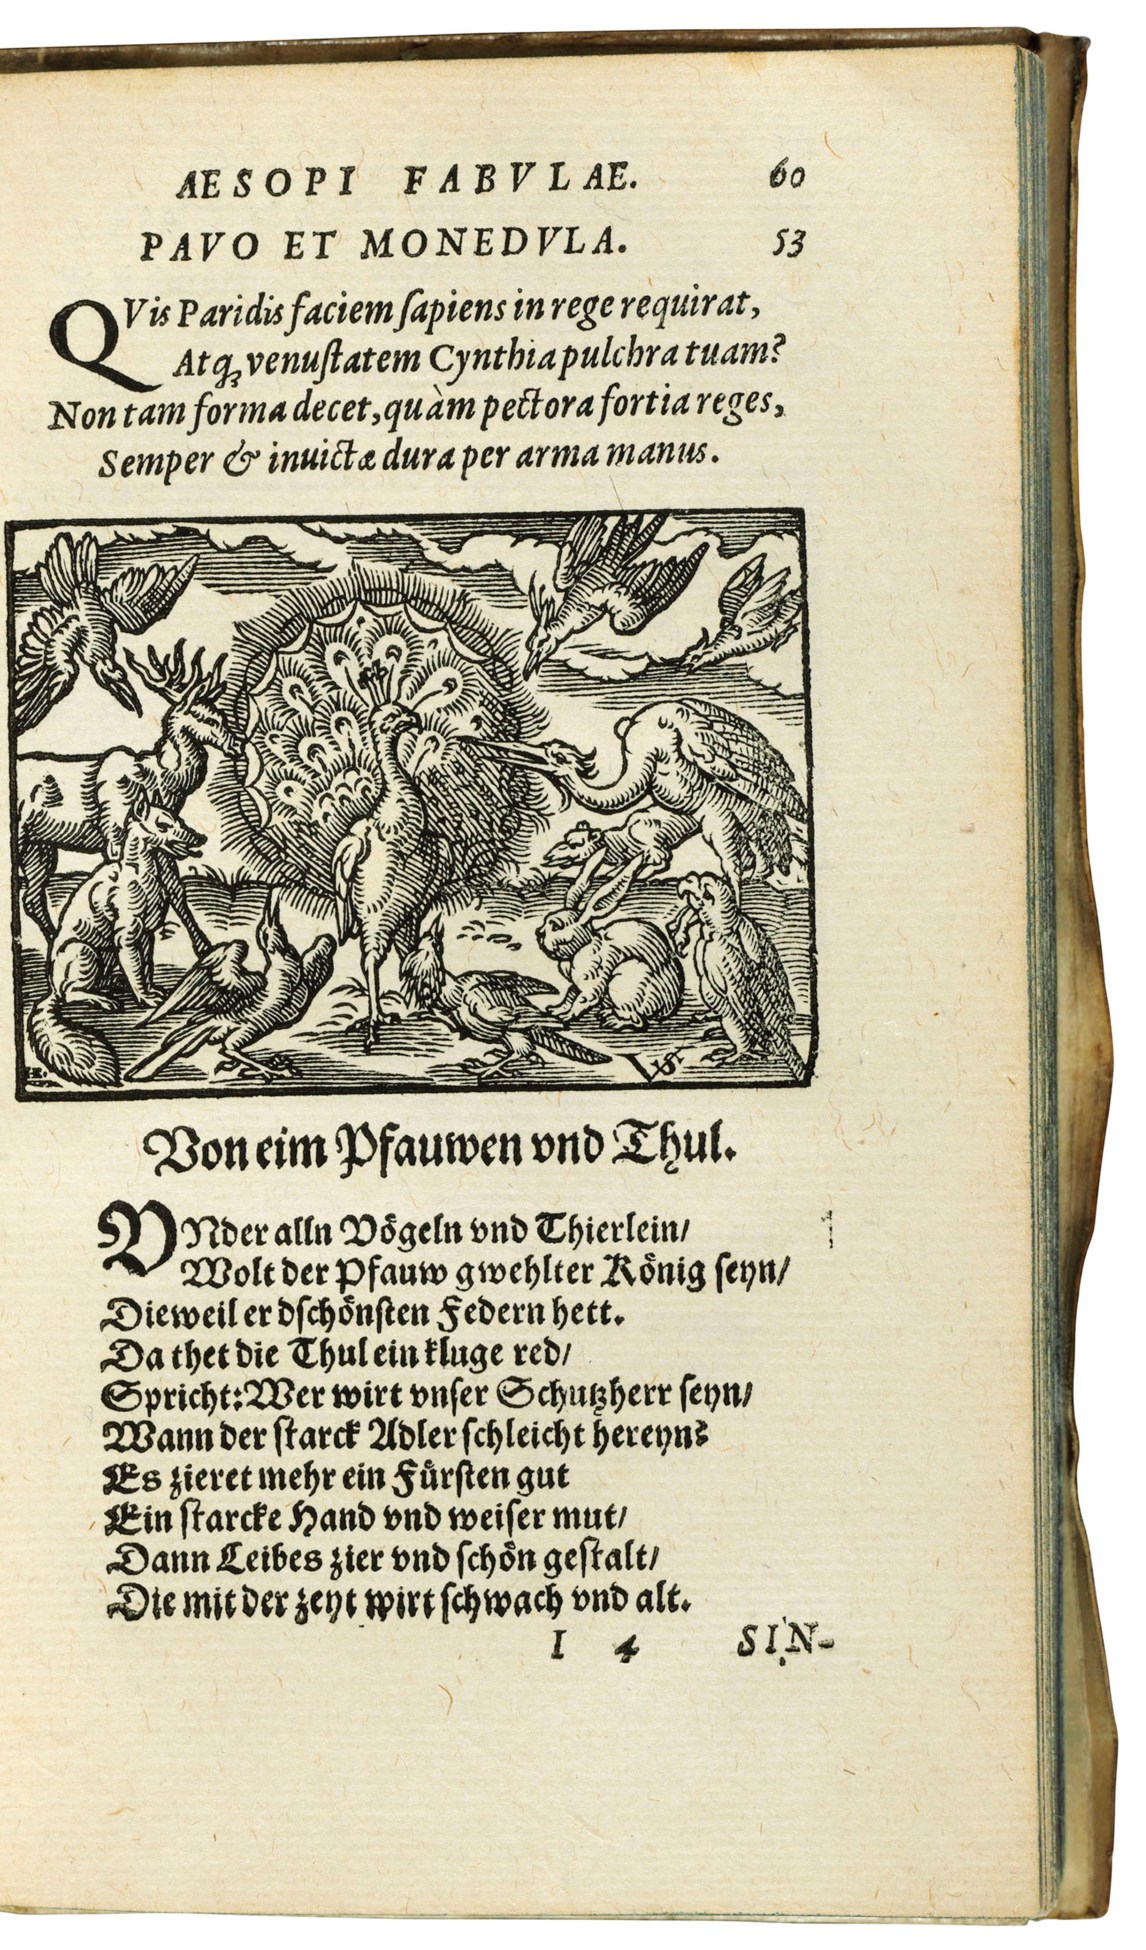 AESOPI FABVLAE. 60
PAVO ET MONEDVLA. 53
QVis Paridis faciem ſapiens in rege requirat,
Atq; venuſtatem Cynthia pulchra tuam?
Non tam forma decet, quàm pectora fortia reges,
Semper & inuictæ dura per arma manus.
VS
Von eim Pfauwen vnd Thul.
VNder alln Vögeln vnd Thierlein/
Wolt der Pfauw gwehlter König ſeyn/
Dieweil er dſchönſten Federn hett.
Da thet die Thul ein kluge red/
Spricht: Wer wirt vnſer Schutzherr ſeyn/
Wann der ſtarck Adler ſchleicht hereyn?
Es zieret mehr ein Fürſten gut
Ein ſtarcke Hand vnd weiſer mut/
Dann Leibes zier vnd ſchön geſtalt/
Die mit der zeyt wirt ſchwach vnd alt.
I 4 SIN-